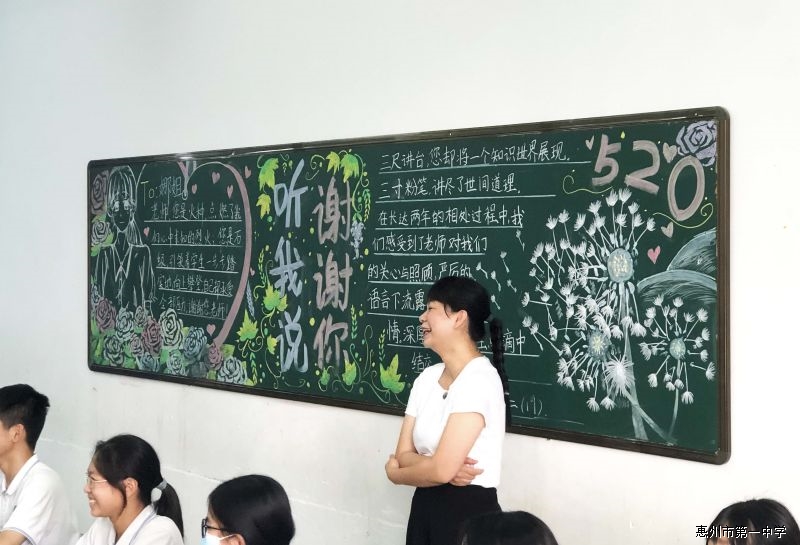 To: 娜姐
老师,您是火种,点燃了我
们心中未知的烈火,您是石
级,引领着学生一步步踏
实地向上攀登
谢谢您老师
听我说
谢谢你
三尺讲台,您却将一个知识世界展现。
三寸粉笔,讲尽了世间道理。
在长达两年的相处过程中,我
们感受到了老师对我们
的关心与照顾,严厉的
语言下流露
情,深
滴中
结
二(19).
520
惠州市第一中学